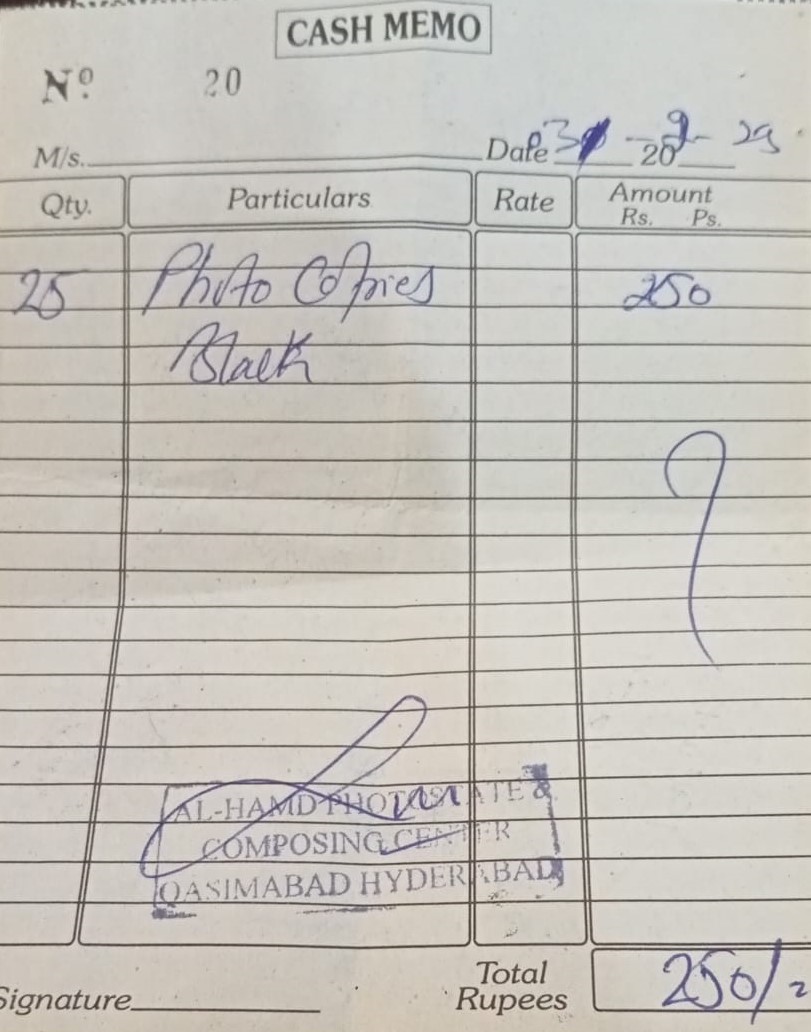 CASH MEMO
Nº 20
M/s. Date 20 9-
Qty. Particulars Rate Amount
Rs. Ps.
25 Photo Copies 250
Black
AL-HAMD PHOTOSTATE &
COMPOSING CENTER
QASIMABAD HYDERABAD
Total
Signature Rupees 250/=